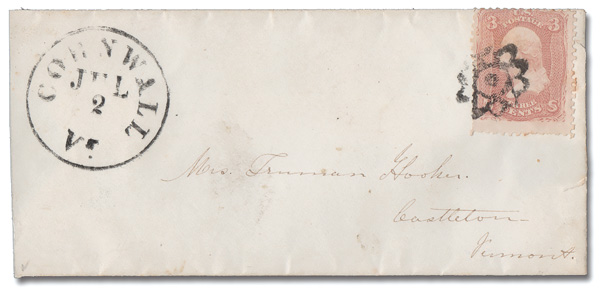 CORNWALL
JUL
2
Vt.
3 POSTAGE 3
CENTS
Mrs. Truman Hooker.
Castleton
Vermont.